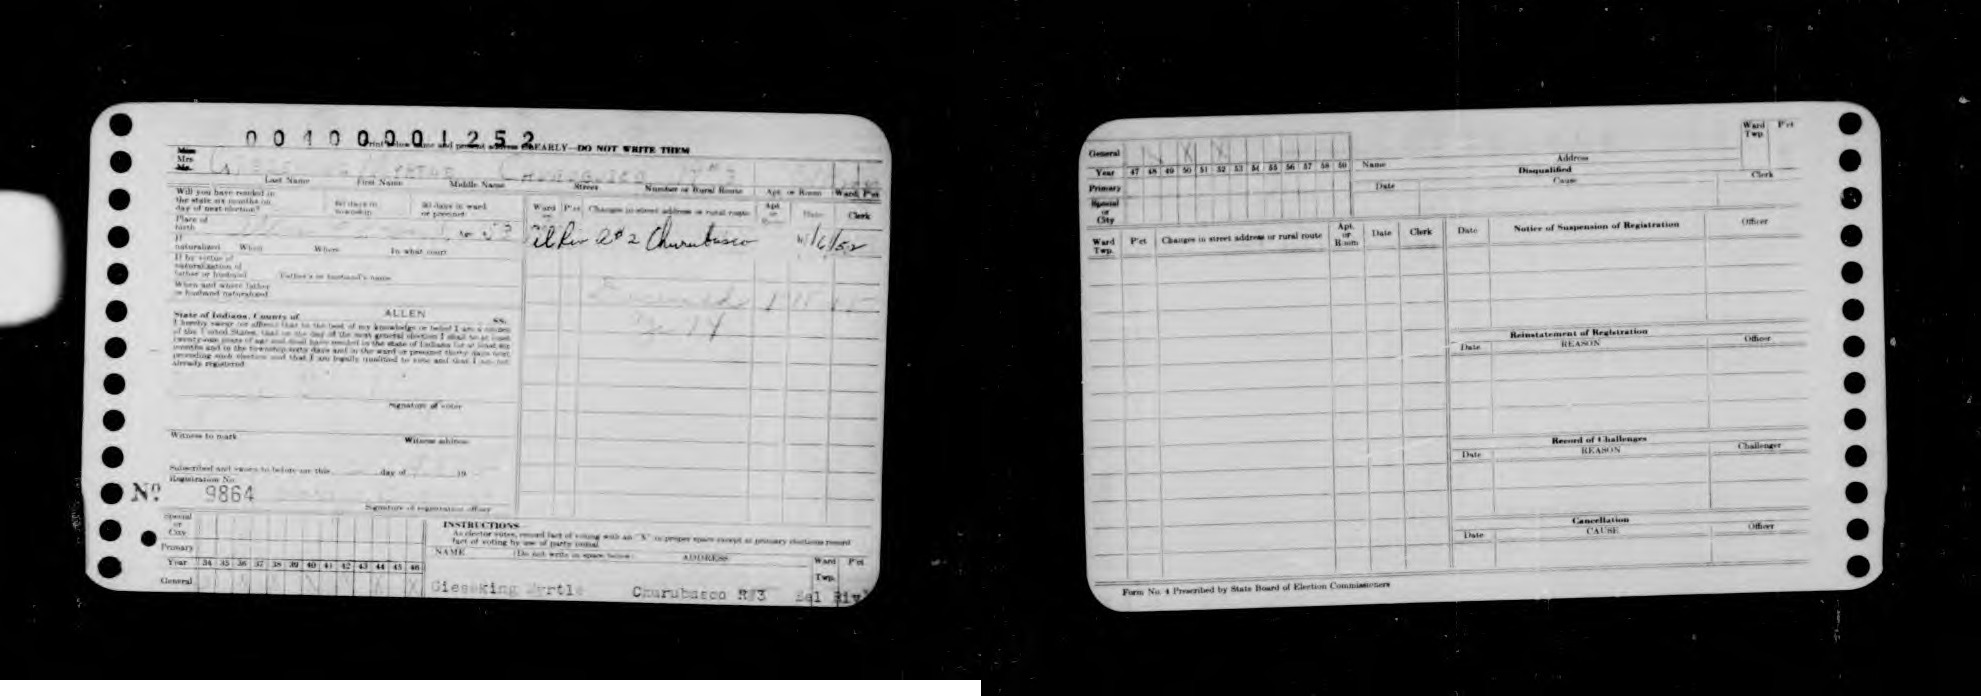 00400001252
Print below name and present address CLEARLY—DO NOT WRITE THEM
Miss
Mrs
Mr.
Churubusco R#3
Last Name First Name Middle Name Street Number or Rural Route Apt. or Room Ward P'ct
Will you have resided in
the state six months on
day of next election?
60 days in
township
30 days in ward
or precinct
Place of
birth
Age 53
If
naturalized When Where In what court
If by virtue of
naturalization of
father or husband Father's or husband's name
When and where father
or husband naturalized
State of Indiana, County of ALLEN SS:
I hereby swear (or affirm) that to the best of my knowledge or belief I am a citizen
of the United States, that on the day of the next general election I shall be at least
twenty-one years of age and shall have resided in the state of Indiana for at least six
months and in the township sixty days and in the ward or precinct thirty days next
preceding such election and that I am legally qualified to vote and that I am not
already registered
Signature of voter
Witness to mark Witness address
Subscribed and sworn to before me this day of 19
Registration No.
No. 9864
Signature of registration officer
Ward P'ct Changes in street address or rural route Apt. or Room Date Clerk
el Riv R#2 Churubusco 11/6/52
Deceased
Special
or
City
Primary
Year 34 35 36 37 38 39 40 41 42 43 44 45 46
General X X X X X
INSTRUCTIONS
As elector votes, record fact of voting with an "X" in proper space except at primary elections record
fact of voting by use of party initial.
NAME (Do not write in space below) ADDRESS Ward Twp. P'ct
Gieseking Myrtle Churubusco R#3 Eel Riv
General X X X
Year 47 48 49 50 51 52 53 54 55 56 57 58 59
Primary
Special
or
City
Name Address Ward Twp. P'ct
Disqualified
Date Cause Clerk
Ward Twp. P'ct Changes in street address or rural route Apt. or Room Date Clerk
Date Notice of Suspension of Registration Officer
Reinstatement of Registration
Date REASON Officer
Record of Challenges
Date REASON Challenger
Cancellation
Date CAUSE Officer
Form No. 4 Prescribed by State Board of Election Commissioners